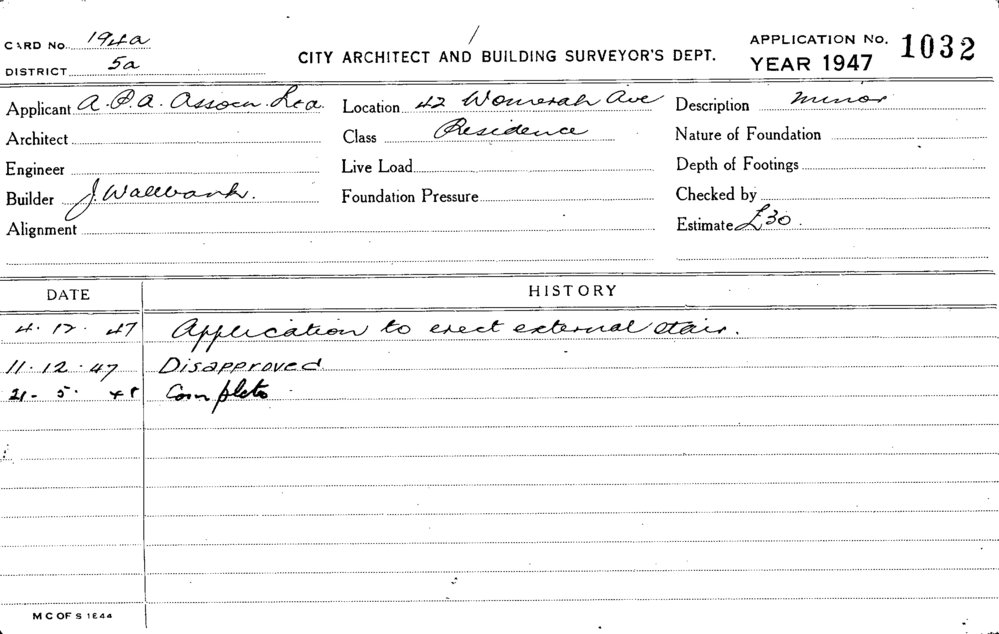 CARD No. 194a
DISTRICT 5a
CITY ARCHITECT AND BUILDING SURVEYOR'S DEPT.
APPLICATION No. 1032
YEAR 1947
Applicant A.P.A. Assocn Ltd. Location 42 Womerah Ave Description minor
Architect Class Residence Nature of Foundation
Engineer Live Load Depth of Footings
Builder J. Wallbank. Foundation Pressure Checked by
Alignment Estimate £30.
DATE HISTORY
4. 12. 47 Application to erect external stair.
11. 12. 47 Disapproved
21 - 5. 48 Complete
M C OF S 1844